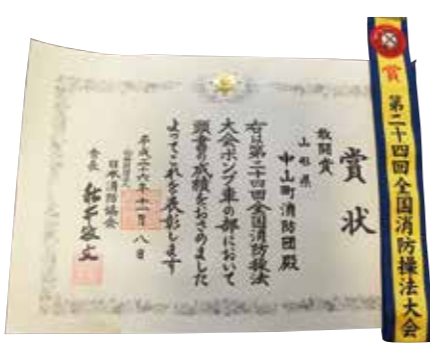 賞状
敢闘賞
山形県
中山町消防団殿
右は第二十四回全国消防操法
大会ポンプ車の部において
頭書の成績をおさめました
よってこれを表彰します
平成二十六年十一月八日
日本消防協会
会長
賞
第二十四回全国消防操法大会